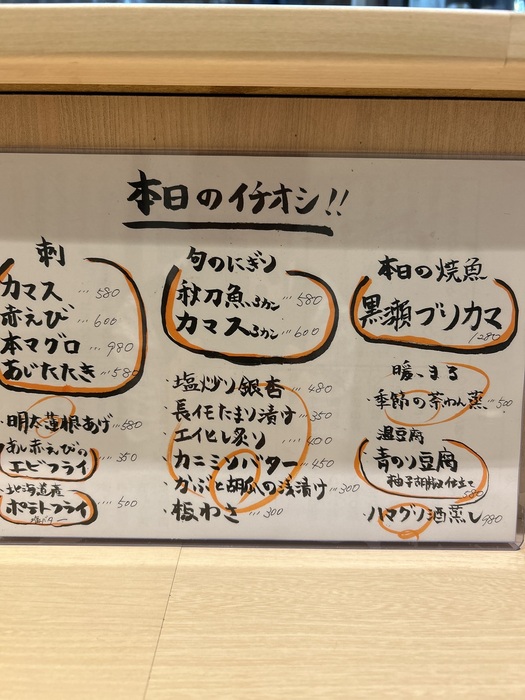 本日のイチオシ!!
刺
カマス …580
赤えび …600
本マグロ …980
あじたたき …580
・明太蓮根あげ …580
赤えびの
エビフライ …350
北海道産
ポテトフライ …500
旬のにぎり
秋刀魚 …580
カマス …600
・塩炒り銀杏 …480
・長イモたまり漬け …350
・エイヒレ炙り …400
・カニミソバター …450
・かぶと胡瓜の浅漬け …300
・板わさ …300
本日の焼魚
黒瀬ブリカマ
1280
暖まる
季節の茶わん蒸 …500
温豆腐
青のり豆腐
柚子胡椒仕立て
580
・ハマグリ酒蒸し 980